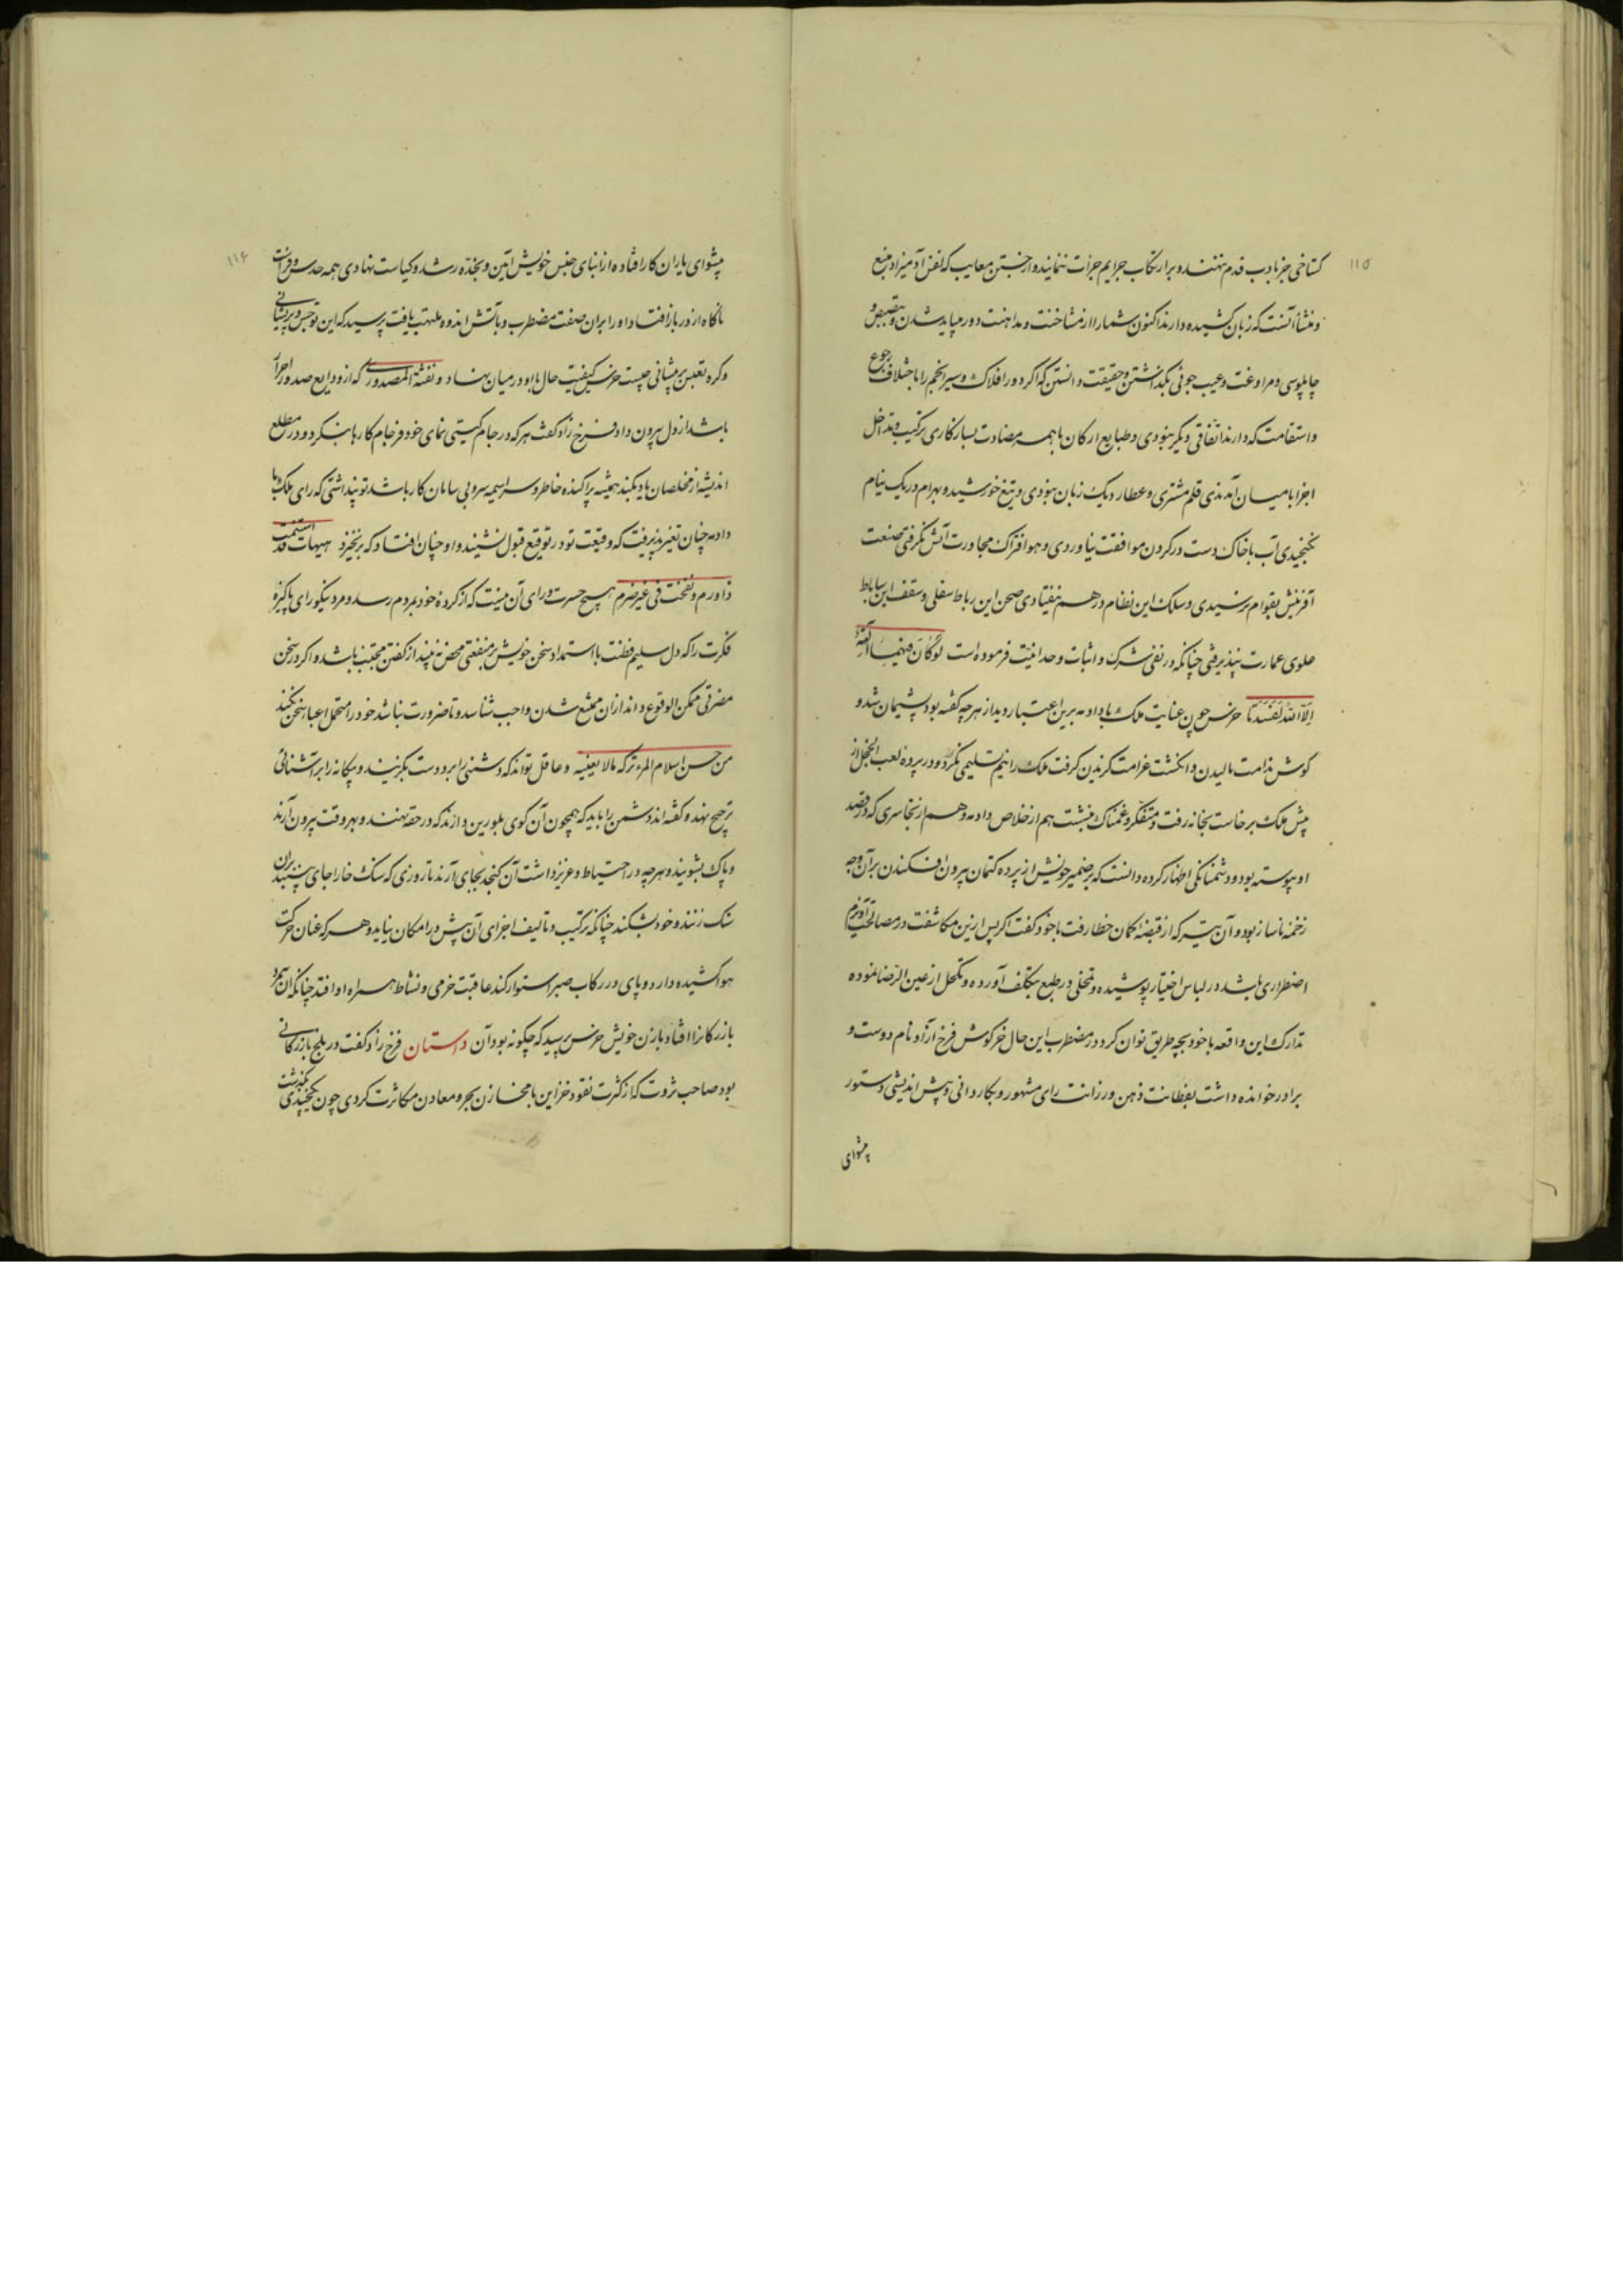 ۱۱۵
گستاخی جز بادب قدم ننهند و بر ارتکاب جرایم جرأت ننمایند و از جستن معایب که نفس آدمیزاد منبع
و منشأ آنست که زبان کشیده دارند اکنون شما را از مشاحنت و مداهنت دور میباید شدن و تبصبص و
چاپلوسی و مراوغت و عیب جوئی بگذاشتن و حقیقت دانستن که اگر دور افلاک و سیر انجم را با اختلاف رجوع
و استقامت که دارند اتفاقی دیگر نبودی و طبایع ارکان با همه مضادت بسازگاری ترکیب و تداخل
اجزا بامیان آمدندی قلم مشتری و عطارد یک زبان نبودی و تیغ خورشید و بهرام در یک نیام
نگنجیدی آب با خاک دست در گردن موافقت نیاوردی و هوا فتراک مجاورت آتش نگرفتی صنعت
آفرینش بقوام نرسیدی و سلک این نظام درهم نیفتادی صحن این رباط سفلی و سقف این ساباط
علوی عمارت نپذیرفتی چنانکه در نفی شرک و اثبات وحدانیت فرموده است لَوْ كَانَ فِيهِمَا آلِهَةٌ
إِلَّا اللهُ لَفَسَدَتَا خرس چون عنایت ملک با دادمه برین اعتبار دید از هرچه گفته بود پشیمان شد و
گوش ندامت مالیدن و انگشت غرامت گزیدن گرفت ملک را نیم تسلیمی بکرد و در پرده لعب الخجل از
پیش ملک برخاست بخانه رفت و متفکر و غمناک بنشست هم از خلاص دادمه و هم از نجاسری که در قصد
او پیوسته بود و دشمنانگی اظهار کرده دانست که بر ضمیر خویش از پرده کتمان بیرون افکندن بر آن وجه
زخمه ناساز بود و آن تیر که از قبضه گمان خطا رفت با خود گفت اگر پس ازین مکاشفت در مصالحت آویزم
اضطراری باشد در لباس اختیار پوشیده و تحلی در طبع بتکلف آورده و تکحل از عین الرضا نموده
تدارک این واقعه با خود بچه طریق توان کرد در مضطرب این حال خرگوش فرخ آزاد نام دوست و
برادر خوانده داشت بفطانت ذهن و رزانت رای مشهور و بکاردانی و پیش اندیشی دستور
پیشوای
۱۱۶
پیشوای یاران کار افتاده از ابنای جنس خویش آیین و بجنده رشد و کیاست نهادی همه حدس و فراست
ناگاه از در باز افتاد او را بران صفت مضطرب و بآتش اندوه ملتهب یافت پرسید که این توحش و پریشانی
و گره تعبس بر پیشانی چیست خرس کیفیت حال با او در میان نهاد و نفثة المصدوری که از ودایع صدور احرار
باشد از دل بیرون داد فرخ زاد گفت هر که در جام گیتی نمای خود فرجام کارها ننگرد و در مطلع
اندیشه از مخلصان یاد نکند همیشه پراکنده خاطر و سراسیمه سر و بی سامان کار باشد تو پنداشتی که رای ملک با
دادمه چنان تغیر پذیرفت که وقیعت تو در توقیع قبول نشیند و او چنان افتاد که برنخیزد هیهات قد استسمنت
ذا ورم و نفخت فی غیر ضرم هیچ حسرت ورای آن نیست که از کرده خود بمردم رسد و مرد نیکو رای پاکیزه
فکرت را که دل سلیم فطنت با استمداد سخن خویش بر منفعتی محض نبیند از گفتن مجتنب باشد و اگر در سخن
مضرتی ممکن الوقوع داند از ان ممتنع شدن واجب شناسد و تا ضرورت نباشد خود را متحمل اعبا سخن نکند
من حسن اسلام المرء ترکه مالا یعنیه و عاقل تواند که دشمنی را بر دوست بگزیند و بیگانه را بر آشنائی
ترجیح نهد و گفته اند دشمن را باید که همچون آن گوی بلورین دارند که در حقه نهند و بهر وقت بیرون آرند
و پاک بشویند و هرچه در احتیاط و عزیز داشت آن گنجد بجای آرند تا روزی که سنگ خارا جای بینند بران
سنگ زنند و خود بشکند چنانکه ترکیب و تالیف اجزای آن بیش در امکان نیاید و هر که عنان حرکت
هوا کشیده دارد و پای در رکاب صبر استوار کند عاقبت خرمی و نشاط همراه او افتد چنانکه آن مرد
بازرگانرا افتاد با زن خویش خرس پرسید که چگونه بود آن داستان فرخ زاد گفت در بلخ بازرگانی
بود صاحب ثروت که از کثرت نقود خزاین با مخازن بحر و معادن مکاثرت کردی چون یکچندی بگذشت